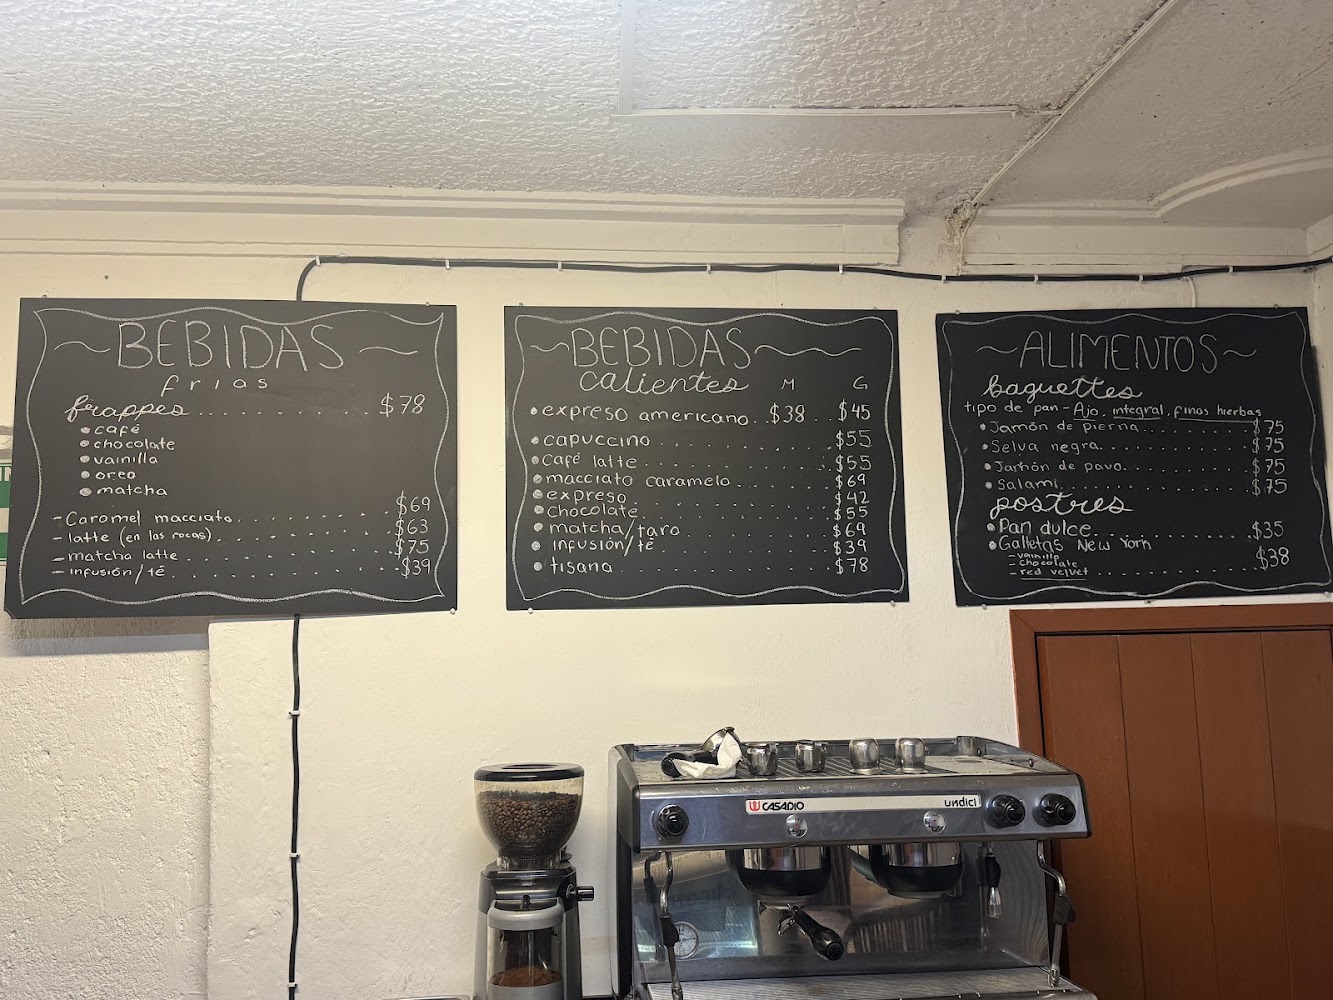 ~BEBIDAS~
frias
frappes.................$78
• café
• chocolate
• vainilla
• oreo
• matcha
- Caramel macciato.............$69
- latte (en las rocas)..............$63
- matcha latte..............$75
- infusión/té..............$39
~BEBIDAS~
calientes M G
• expreso americano..$38 $45
• capuccino..............$55
• café latte..............$55
• macciato caramelo.......$69
• expreso..............$42
• chocolate..............$55
• matcha/taro..............$69
• infusión/té..............$39
• tisana..............$78
~ALIMENTOS~
baguettes
tipo de pan - Ajo, integral, finas hierbas
• Jamón de pierna..............$75
• Selva negra..............$75
• Jamón de pavo..............$75
• Salami..............$75
postres
• Pan dulce..............$35
• Galletas New York
- vainilla
- chocolate $38
- red velvet..............
CASADIO undici